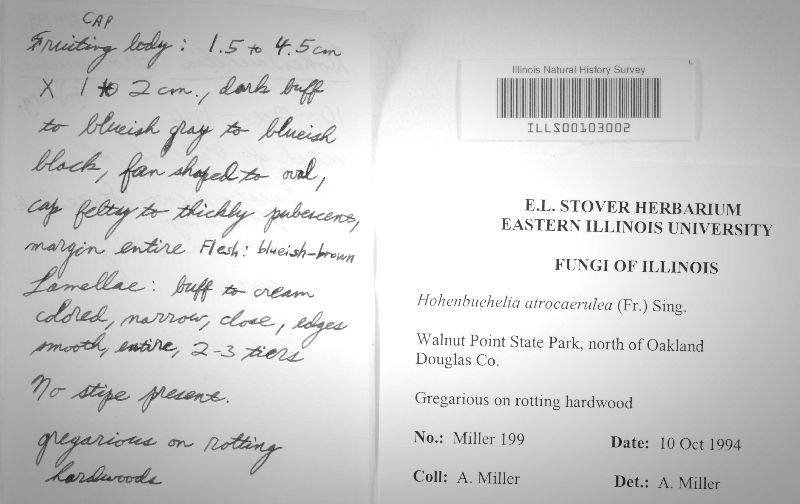 CAP
Fruiting body: 1.5 to 4.5 cm
X 1 to 2 cm., dark buff
to blueish gray to blueish
black, fan shaped to oval,
cap felty to thickly pubescent,
margin entire Flesh: blueish-brown
Lamellae: buff to cream
colored, narrow, close, edges
smooth, entire, 2-3 tiers
No stipe present.
gregarious on rotting
hardwoods
Illinois Natural History Survey
ILLS00103002
E.L. STOVER HERBARIUM
EASTERN ILLINOIS UNIVERSITY
FUNGI OF ILLINOIS
Hohenbuehelia atrocaerulea (Fr.) Sing.
Walnut Point State Park, north of Oakland
Douglas Co.
Gregarious on rotting hardwood
No.: Miller 199 Date: 10 Oct 1994
Coll: A. Miller Det.: A. Miller